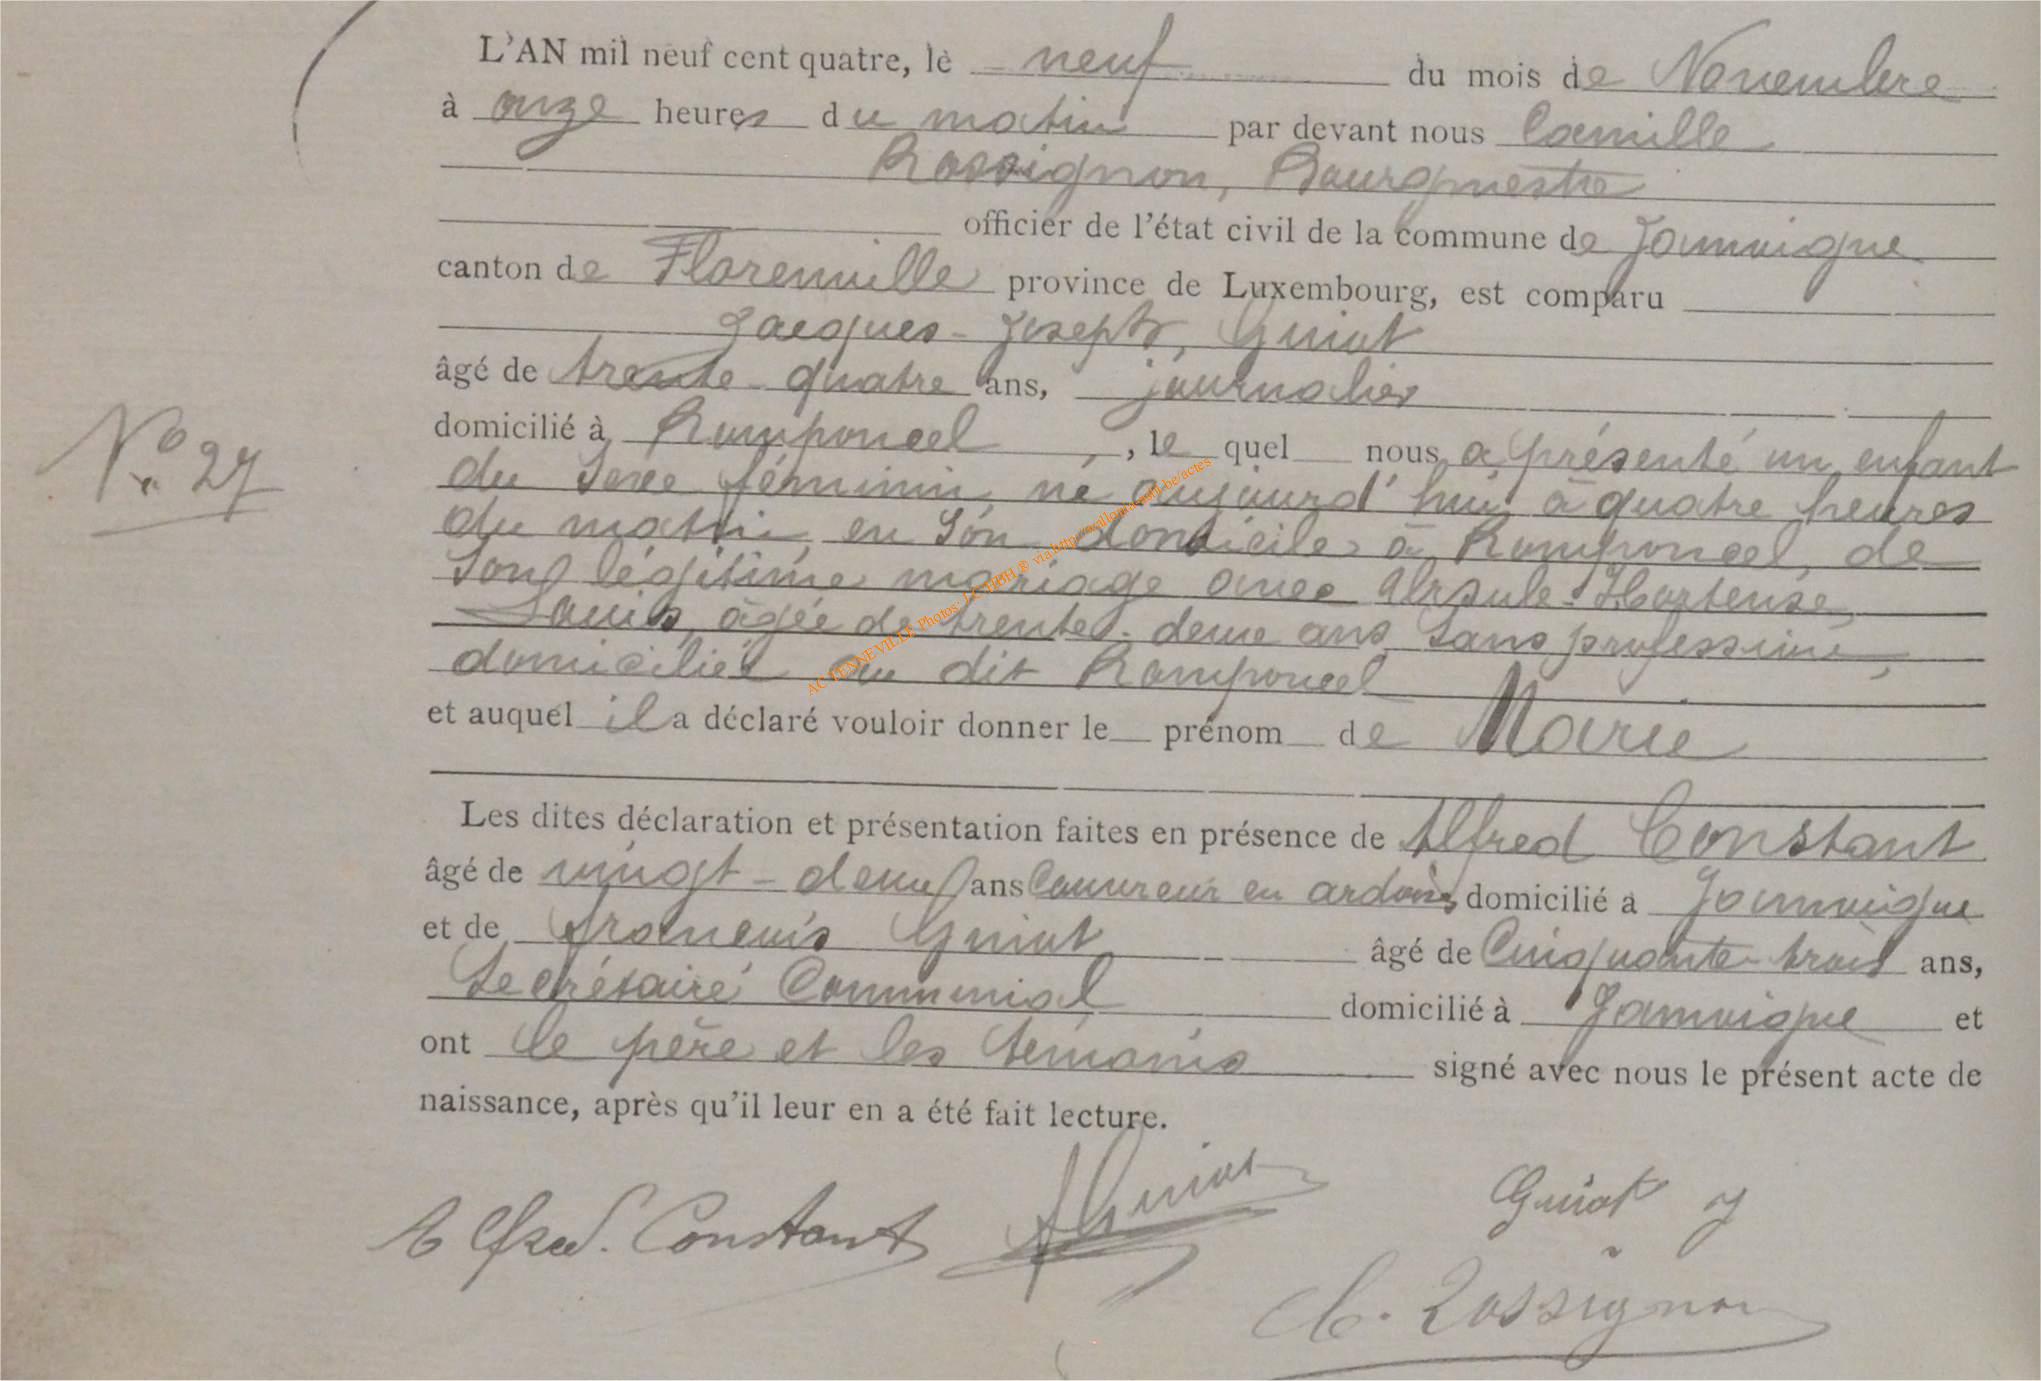 L'AN mil neuf cent quatre, le neuf du mois de Novembre
à onze heures du matin par devant nous Camille
Rossignon, Bourgmestre
officier de l'état civil de la commune de Jamoigne
canton de Florenville province de Luxembourg, est comparu
Jacques-Joseph, Guiot
âgé de trente-quatre ans, journalier
domicilié à Romponcel, le quel nous a présenté un enfant
No 27
du sexe féminin, né aujourd'hui à quatre heures
du matin, en son domicile à Romponcel, de
son légitime mariage avec Ursule-Hortense,
Louis, âgée de trente-deux ans, sans profession,
domiciliée au dit Romponcel
et auquel il a déclaré vouloir donner le prénom de Marie
Les dites déclaration et présentation faites en présence de Alfred Constant
âgé de vingt-deux ans Couvreur en ardoises domicilié à Jamoigne
et de François Guiot âgé de Cinquante-trois ans,
Secrétaire Communal domicilié à Jamoigne et
ont le père et les témoins signé avec nous le présent acte de
naissance, après qu'il leur en a été fait lecture.
Alfred. Constant Guiot Guiot J
C. Rossignon